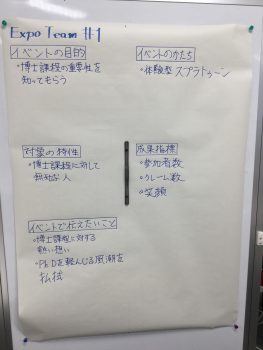 Expo Team #1
イベントの目的
・博士課程の重要性を
知ってもらう
イベントのかたち
・体験型スプラトゥーン
対象の特性
・博士課程に対して
無知な人
成果指標
・参加者数
・クレーム数
・笑顔
イベントで伝えたいこと
・博士課程に対する
熱い想い
・PhDを軽んじる風潮を
払拭